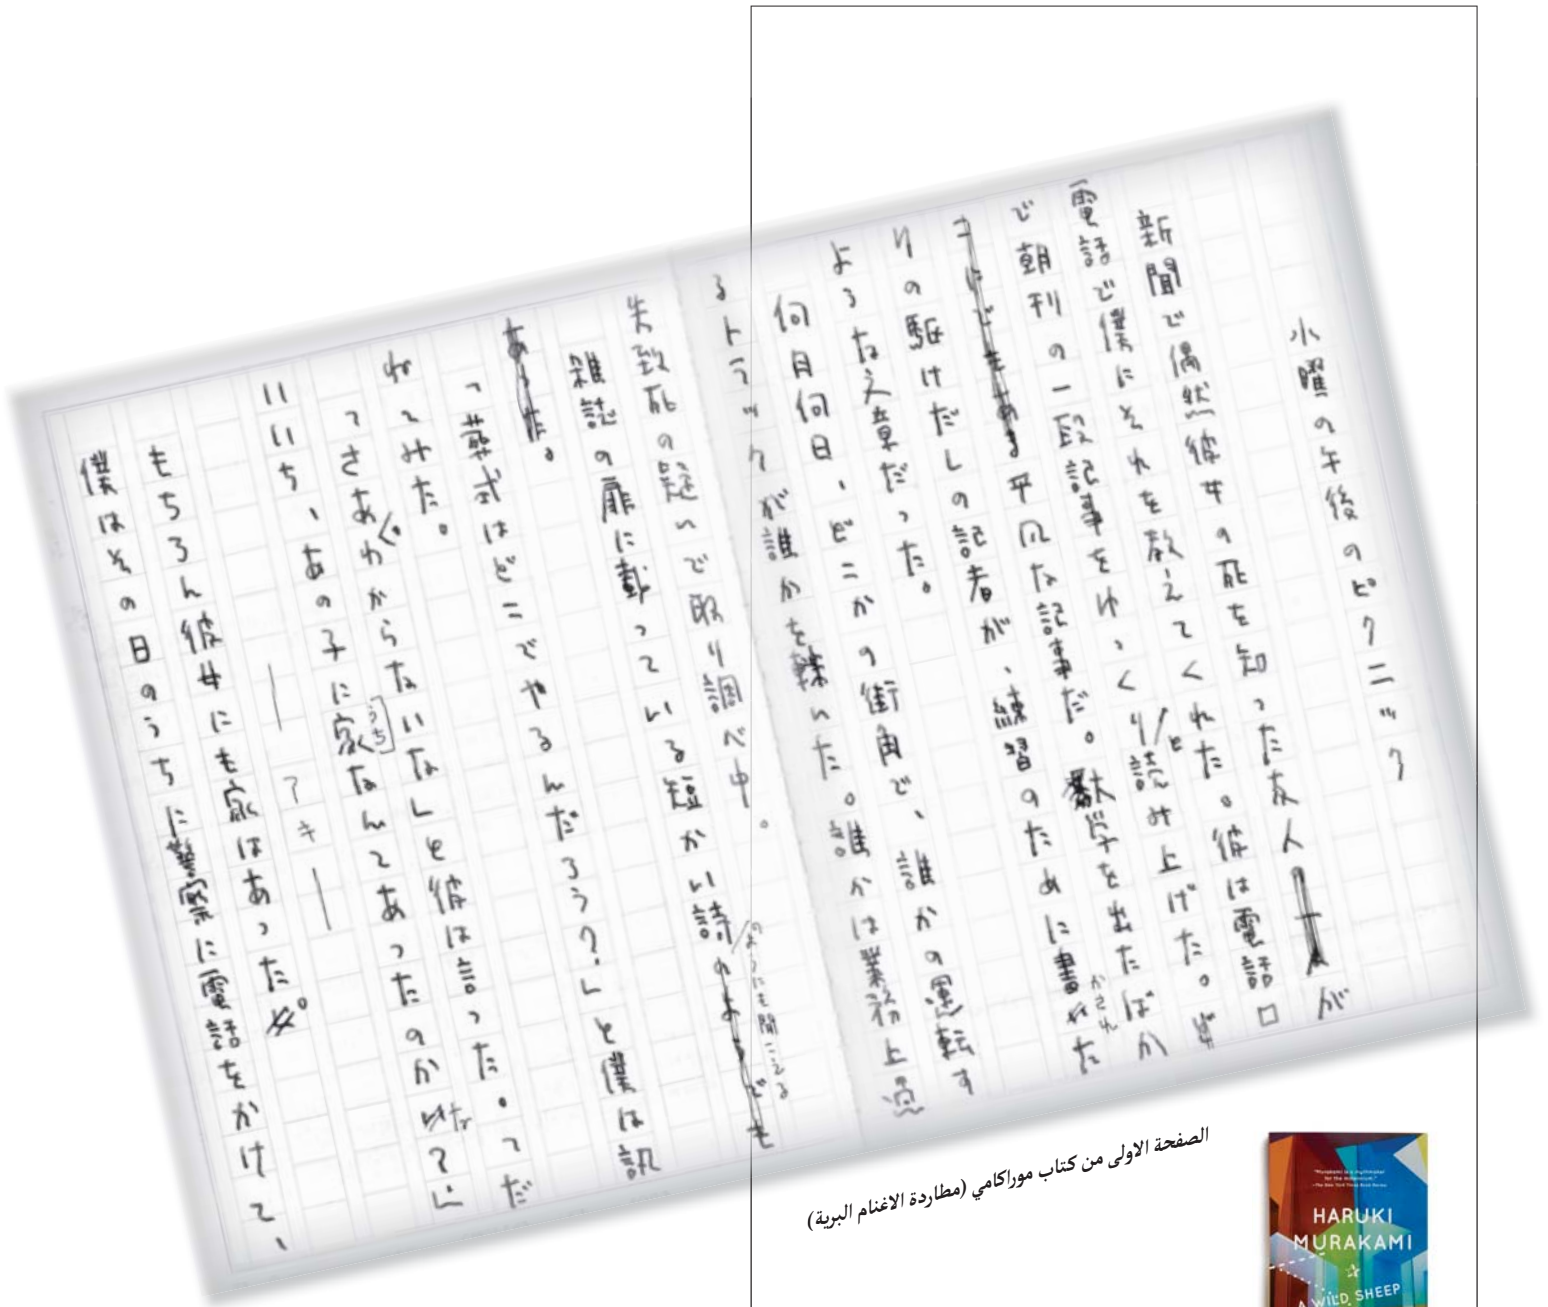 水曜の午後のピクニック
新聞で偶然彼女の死を知った友人が
電話で僕にそれを教えてくれた。彼は電話口
で朝刊の一段記事をゆっくりと読み上げた。
平凡な記事だ。大学を出たばか
りの駆けだしの記者が、練習のために書かされた
ような文章だった。
何月何日、どこかの街角で、誰かの運転す
るトラックが誰かを轢いた。誰かは業務上過
失致死の疑いで取り調べ中。
雑誌の扉に載っている短かい詩のようにも聞こえる
「葬式はどこでやるんだろう?」と僕は訊
ねてみた。
「さあ、わからないな」と彼は言った。「だ
いいち、あの子に家なんてあったのかな?」
うち
― アキ ―
もちろん彼女にも家はあった。
僕はその日のうちに警察に電話をかけて、
الصفحة الاولى من كتاب موراكامي (مطاردة الاغنام البرية)
"Murakami is a mythmaker
for the millennium."
—The New York Times Book Review
HARUKI
MURAKAMI
A WILD SHEEP